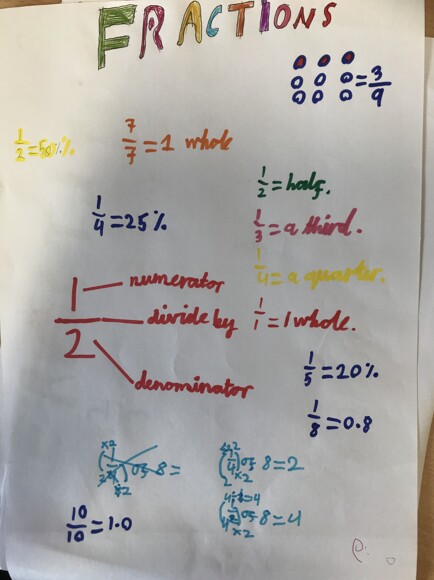 FRACTIONS
= 3/9
1/2 = 50%
7/7 = 1 whole
1/2 = half.
1/4 = 25%
1/3 = a third.
1/4 = a quarter.
1/2
numerator
divide by
denominator
1/1 = 1 whole.
1/5 = 20%
1/8 = 0.8
of 8 =
(1/4) of 8 = 2
of 8 = 4
10/10 = 1.0